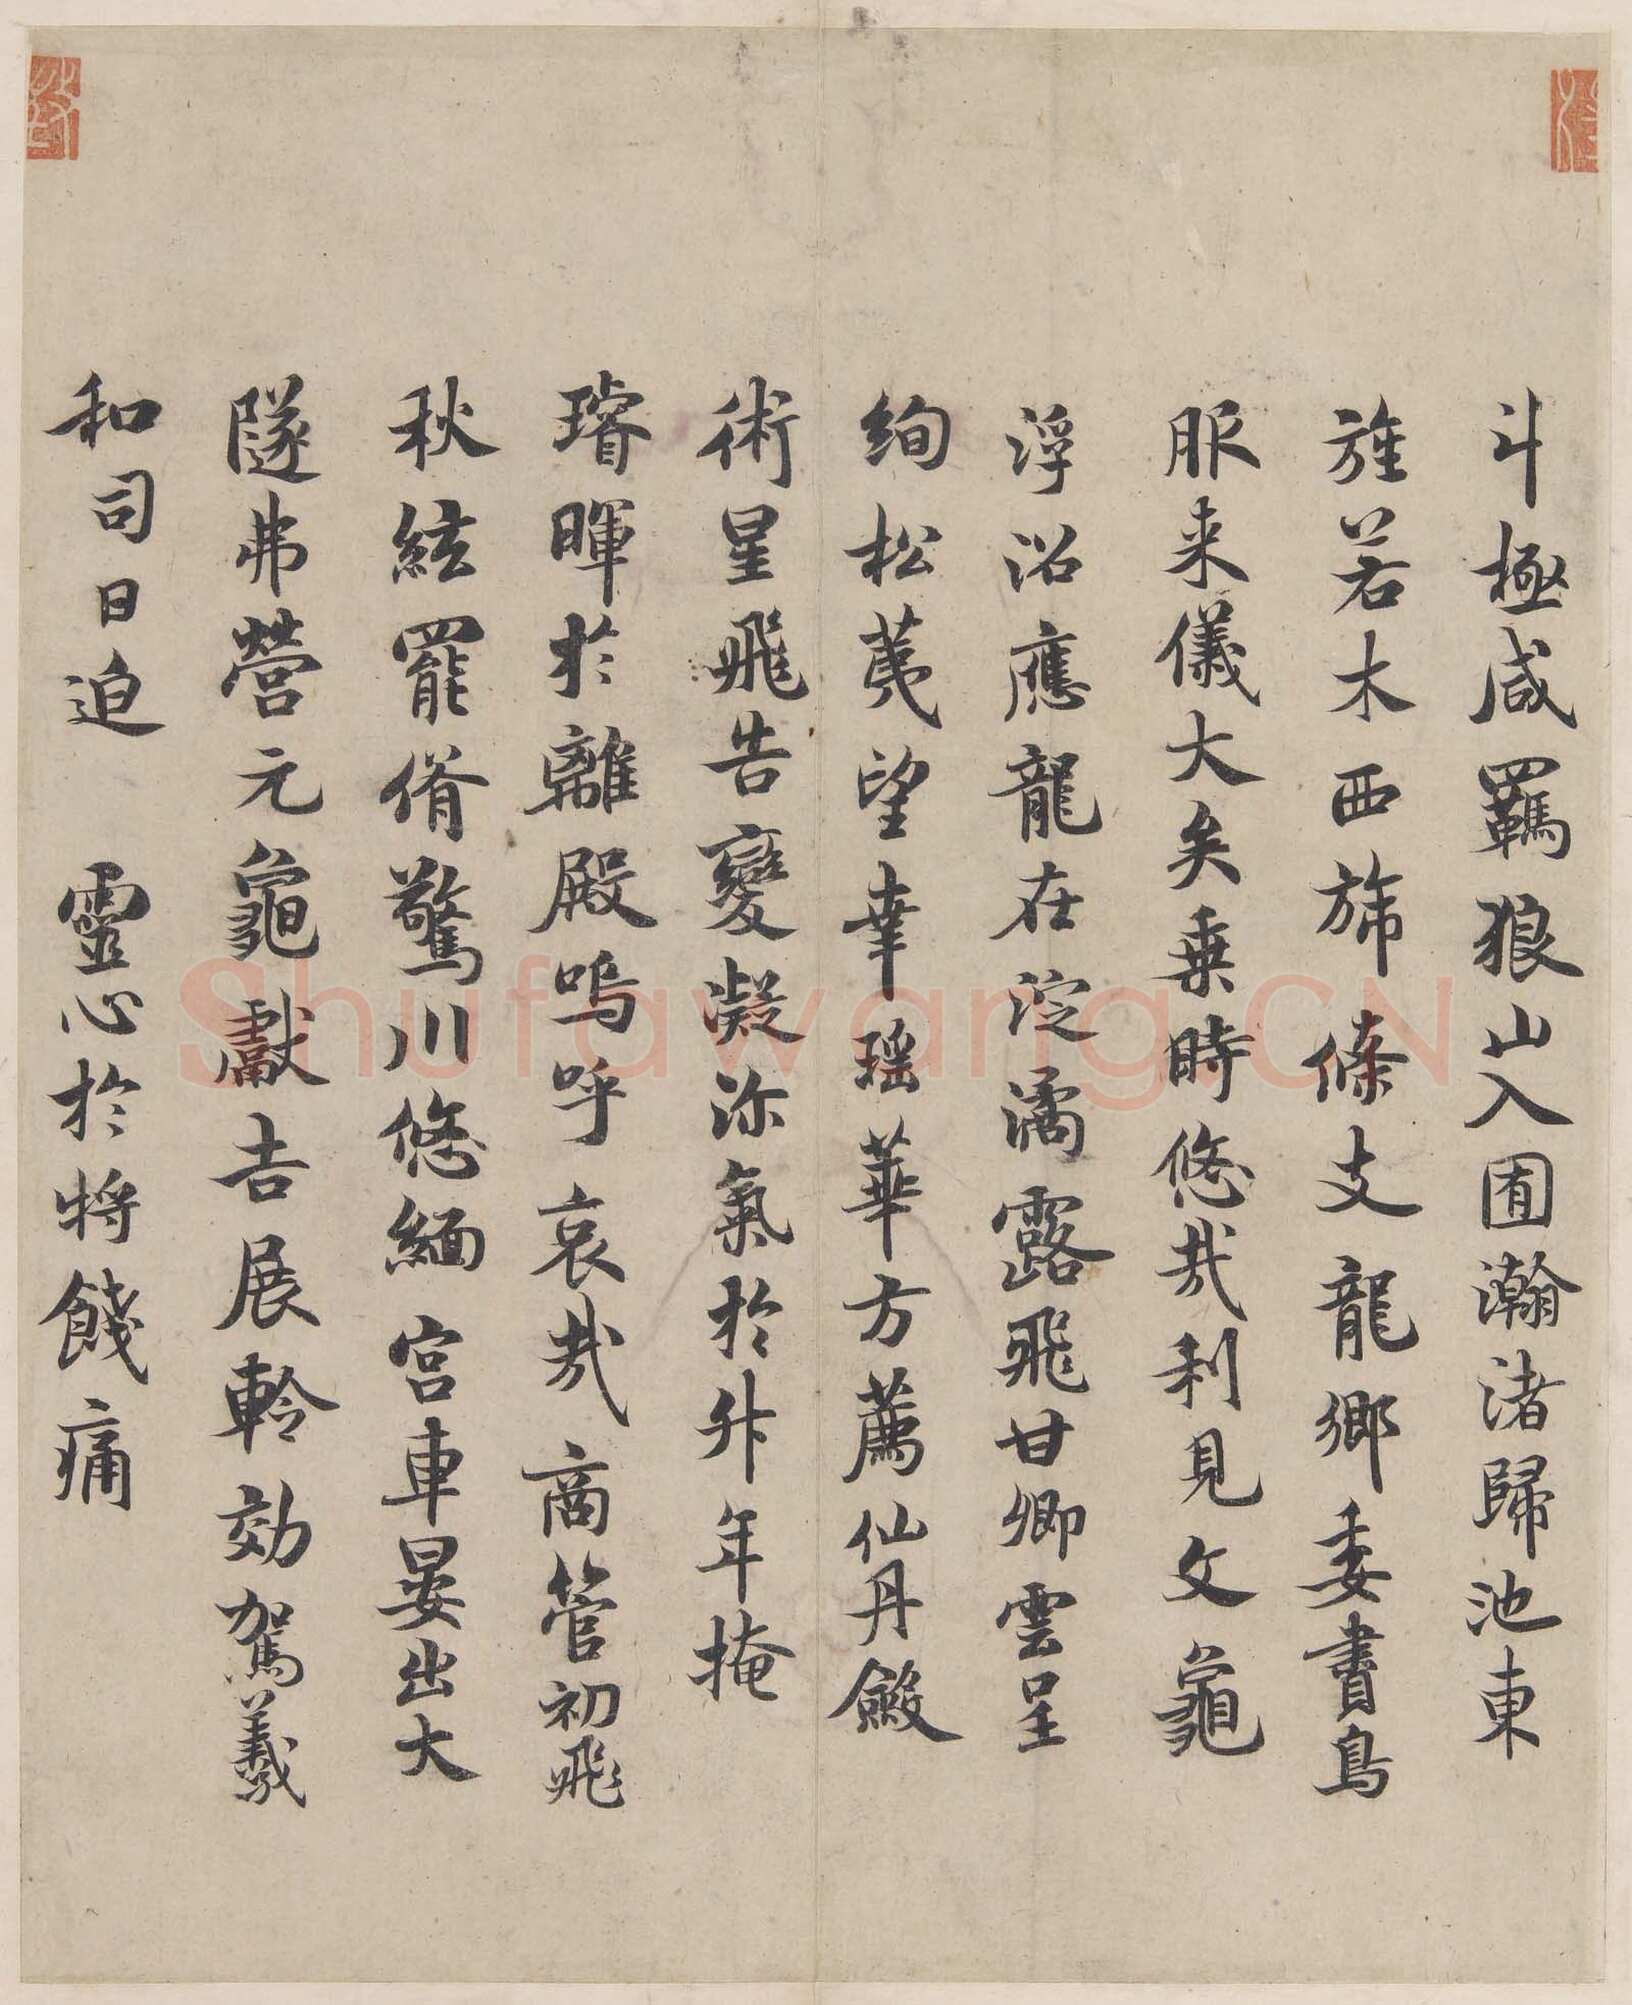 斗極咸羈狼山入囿瀚渚歸池東
旌若木西旆條支龍鄉委賮鳥
服来儀大矣乗時悠哉利見文龜
浮沼應龍在淀潏露飛甘卿雲呈
絢松荑望幸瑶華方薦仙丹斂
術星飛告變凝沴氣於升年掩
璿暉於離殿嗚呼哀哉商管初飛
秋絃罷脩驚川悠緬宮車晏出大
隧弗營元龜獻吉展軨効駕羲
和司日迫靈心於將餞痛
Shufawang.CN